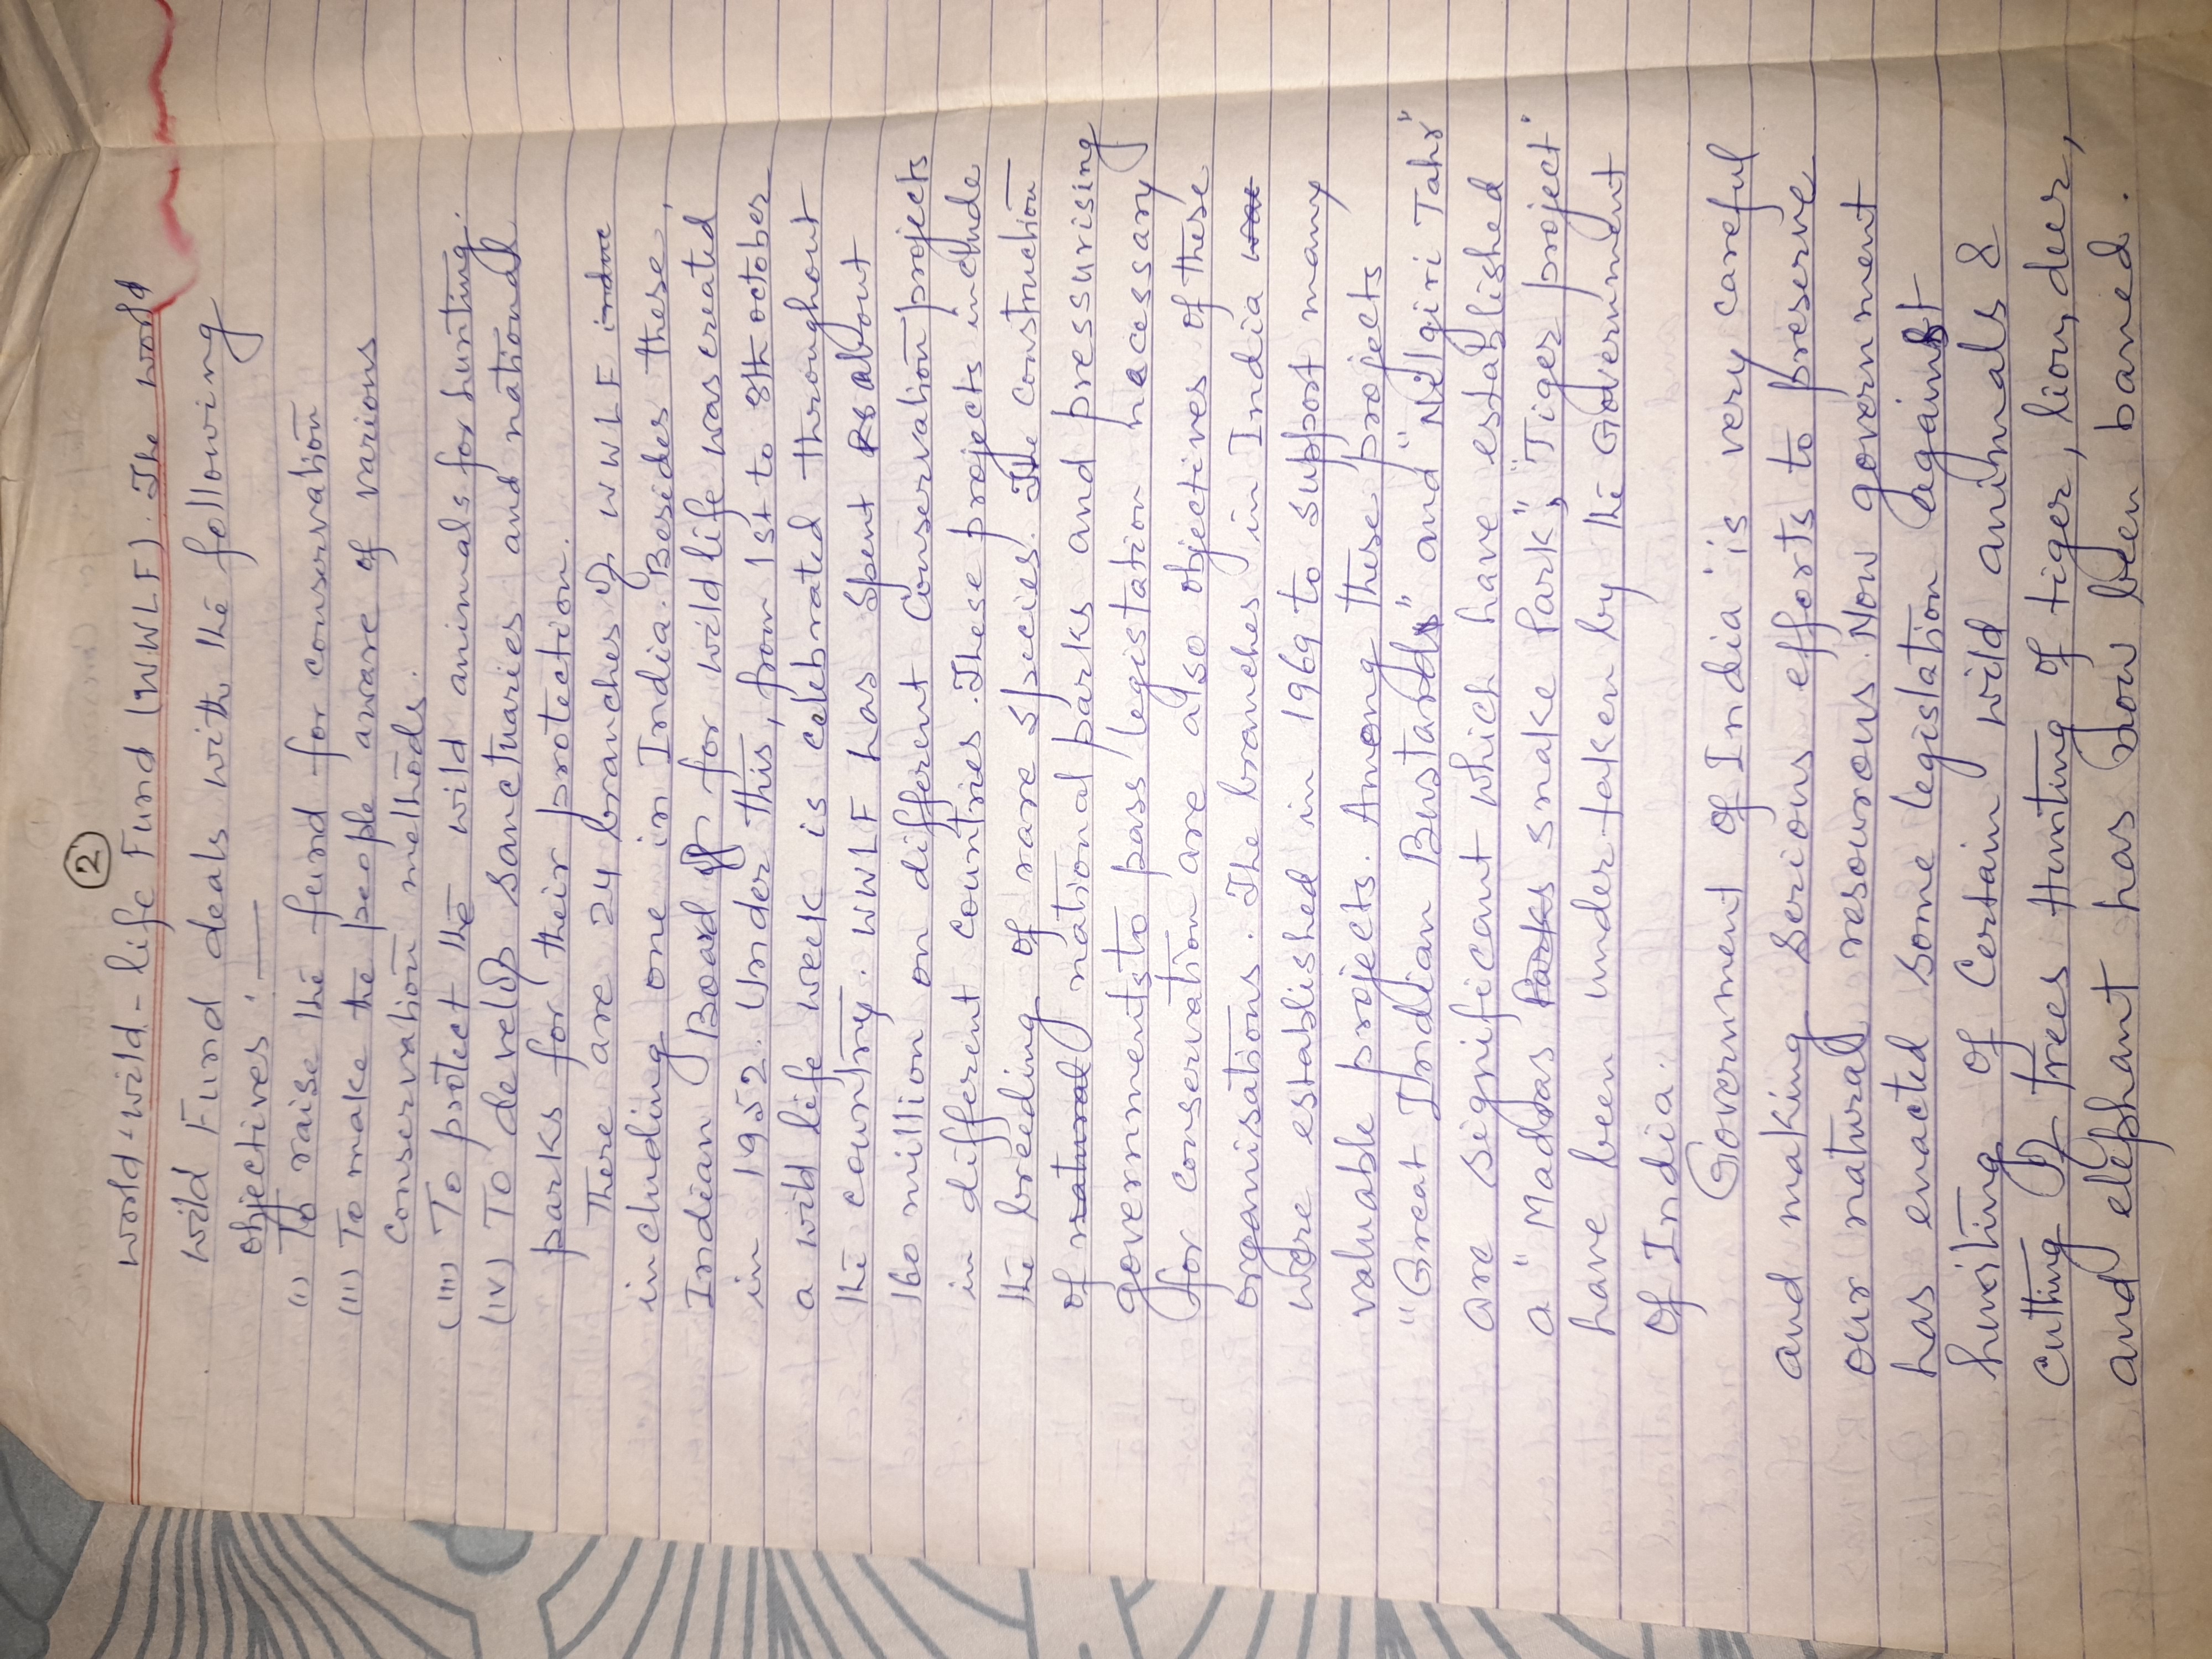 ②
World-wild-life Fund (WWLF). The world
wild Fund deals with the following
objectives :—
(i) To raise the fund for conservation
(ii) To make the people aware of various
conservation methods.
(iii) To protect the wild animals for hunting.
(iv) To develop sanctuaries and national
parks for their protection.
There are 24 branches of WWLF indue
including one in India. Besides these,
Indian Board for wildlife was created
in 1952. Under this, from 1st to 8th october
a wild life week is celebrated throughout
the country. WWLF has spent Rs about
160 million on different conservation projects
in different countries. These projects include
the breeding of rare species. The construction
of natural national parks and pressurising
governments to pass legistation nacessary
for conservation are also objectives of these
organisations. The branches in India was
were established in 1969 to support many
valuable projects. Among these projects
"Great Indian Bustards" and "Nilgiri Tahr"
are significant which have established
a "Madras Parks snake Park", "Tiger project"
have been under taken by the Government
of India.
Government of India is very careful
and making serious efforts to preserve
our natural resourous. Now government
has enacted some legislation against
hunting of certain wild animals &
cutting of trees Hunting of tiger, lion, deer,
and elephant has now been baned.